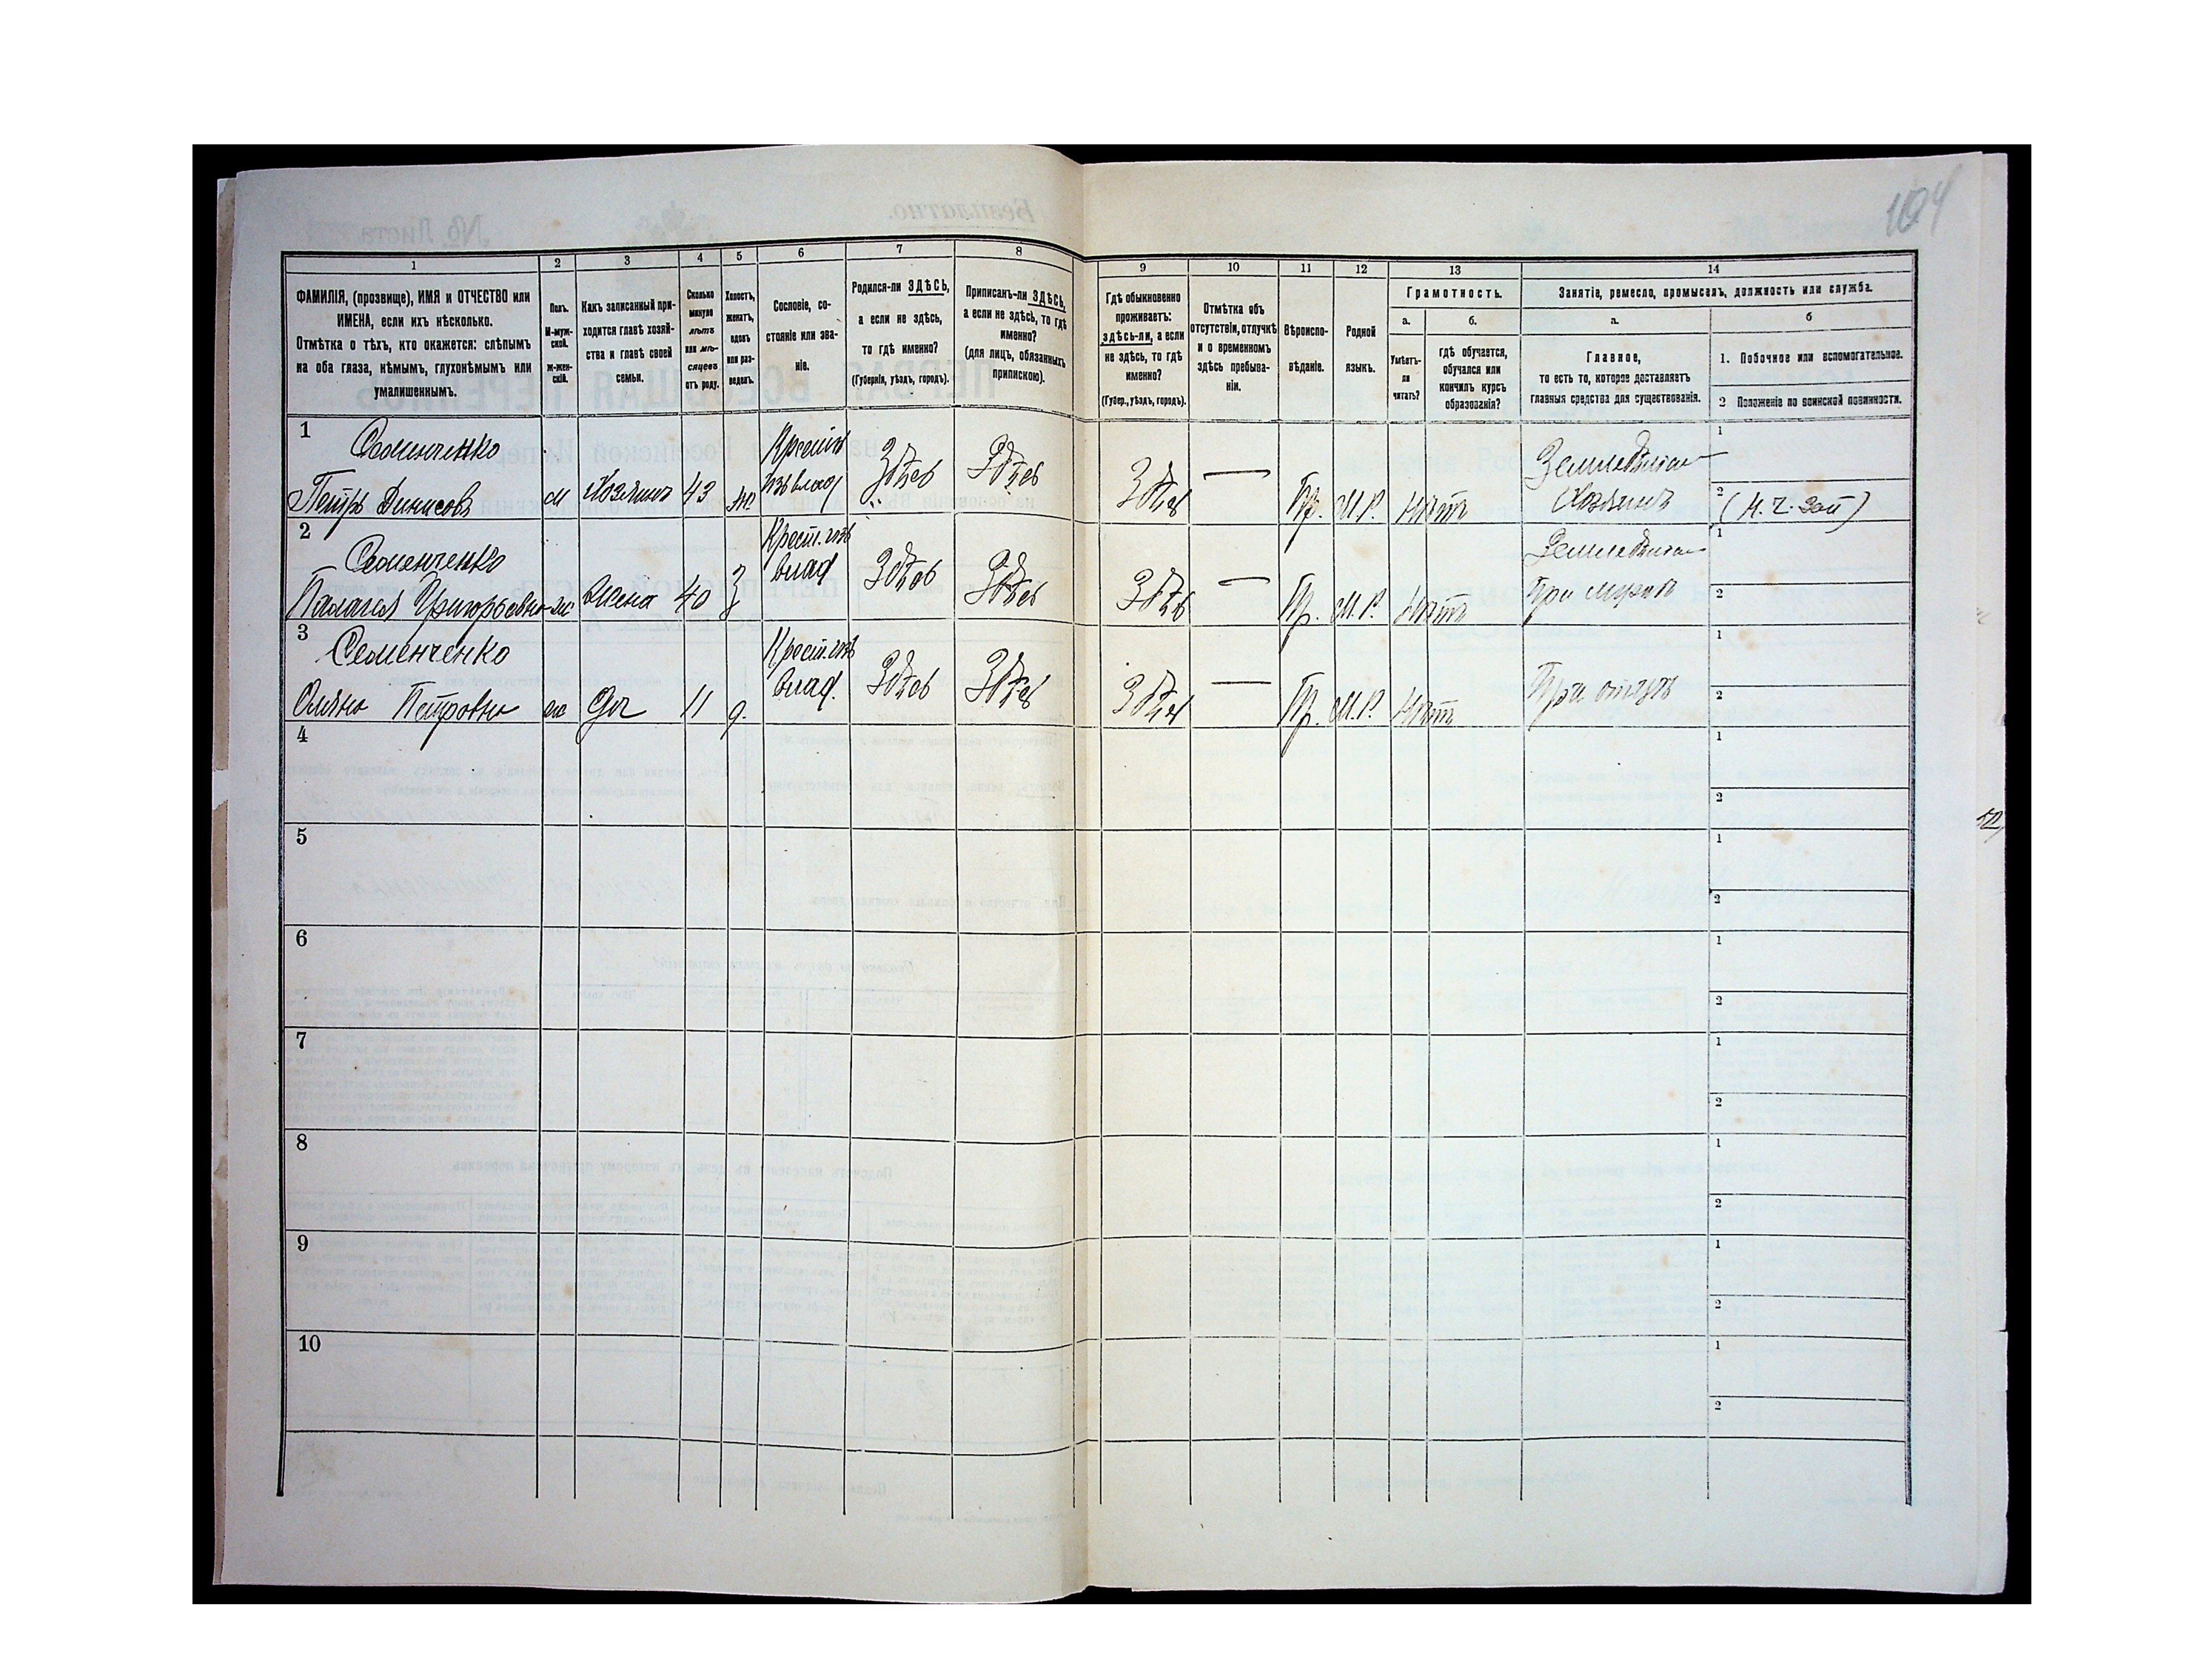 104
1 2 3 4 5 6 7 8 9 10 11 12 13 14
ФАМИЛІЯ, (прозвище), ИМЯ и ОТЧЕСТВО или ИМЕНА, если ихъ нѣсколько.
Отмѣтка о тѣхъ, кто окажется: слѣпымъ на оба глаза, нѣмымъ, глухонѣмымъ или умалишеннымъ.
Полъ.
М-муж-
ской.
Ж-жен-
скій.
Какъ записанный при-
ходится главѣ хозяй-
ства и главѣ своей
семьи.
Сколько
минуло
лѣтъ
или мѣ-
сяцевъ
отъ роду.
Холостъ,
женатъ,
вдовъ
или раз-
веденъ.
Сословіе, со-
стояніе или зва-
ніе.
Родился-ли ЗДѢСЬ,
а если не здѣсь,
то гдѣ именно?
(Губернія, уѣздъ, городъ).
Приписанъ-ли ЗДѢСЬ,
а если не здѣсь, то гдѣ
именно?
(для лицъ, обязанныхъ
припискою).
Гдѣ обыкновенно
проживаетъ:
здѣсь-ли, а если
не здѣсь, то гдѣ
именно?
(Губер., уѣздъ, городъ).
Отмѣтка объ
отсутствіи, отлучкѣ
и о временномъ
здѣсь пребыва-
ніи.
Вѣроиспо-
вѣданіе.
Родной
языкъ.
Грамотность.
а.
Умѣетъ-
ли
читать?
б.
гдѣ обучается,
обучался или
кончилъ курсъ
образованія?
Занятіе, ремесло, промыселъ, должность или служба.
а.
Главное,
то есть то, которое доставляетъ
главныя средства для существованія.
б
1. Побочное или вспомогательное.
2 Положеніе по воинской повинности.
1
Семенченко
Петръ Денисовъ
м
Хозяинъ
43
ж
Крест. изъ влад
Здѣсь
Здѣсь
Здѣсь
—
Пр.
М.Р.
Нѣтъ
Хозяинъ
1
2
2
Семенченко
Палагея Григорьевна
ж
Жена
40
З
Крест. изъ
влад
Здѣсь
Здѣсь
Здѣсь
—
Пр.
М.Р.
Нѣтъ
При мужѣ
1
2
3
Семенченко
Петровна
ж
Доч
11
д.
Крест. изъ
влад.
Здѣсь
Здѣсь
Здѣсь
—
Пр.
М.Р.
Нѣтъ
При отцѣ
1
2
4
1
2
5
1
2
6
1
2
7
1
2
8
1
2
9
1
2
10
1
2